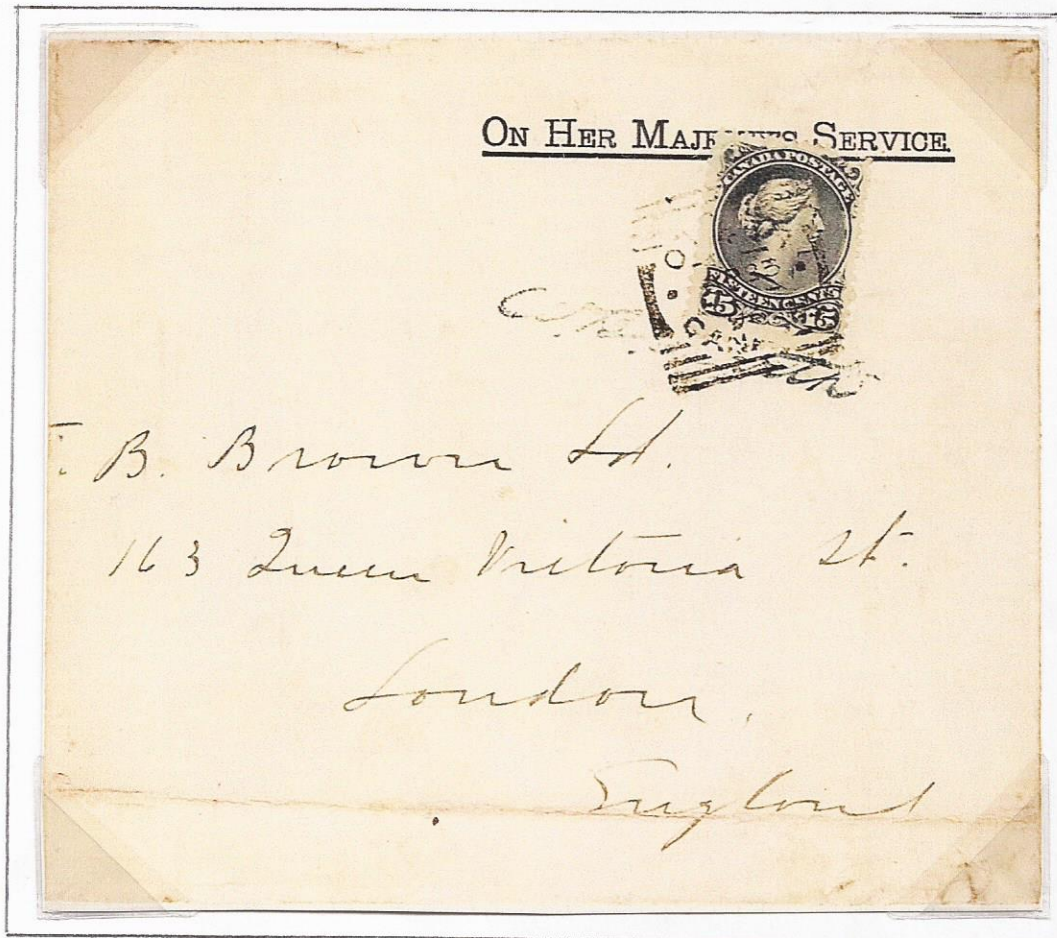 ON HER MAJESTY'S SERVICE.
CANADA POSTAGE
FIFTEEN CENTS
15 15
O
CAN
B. Brown Ld.
163 Queen Victoria St.
London,
England